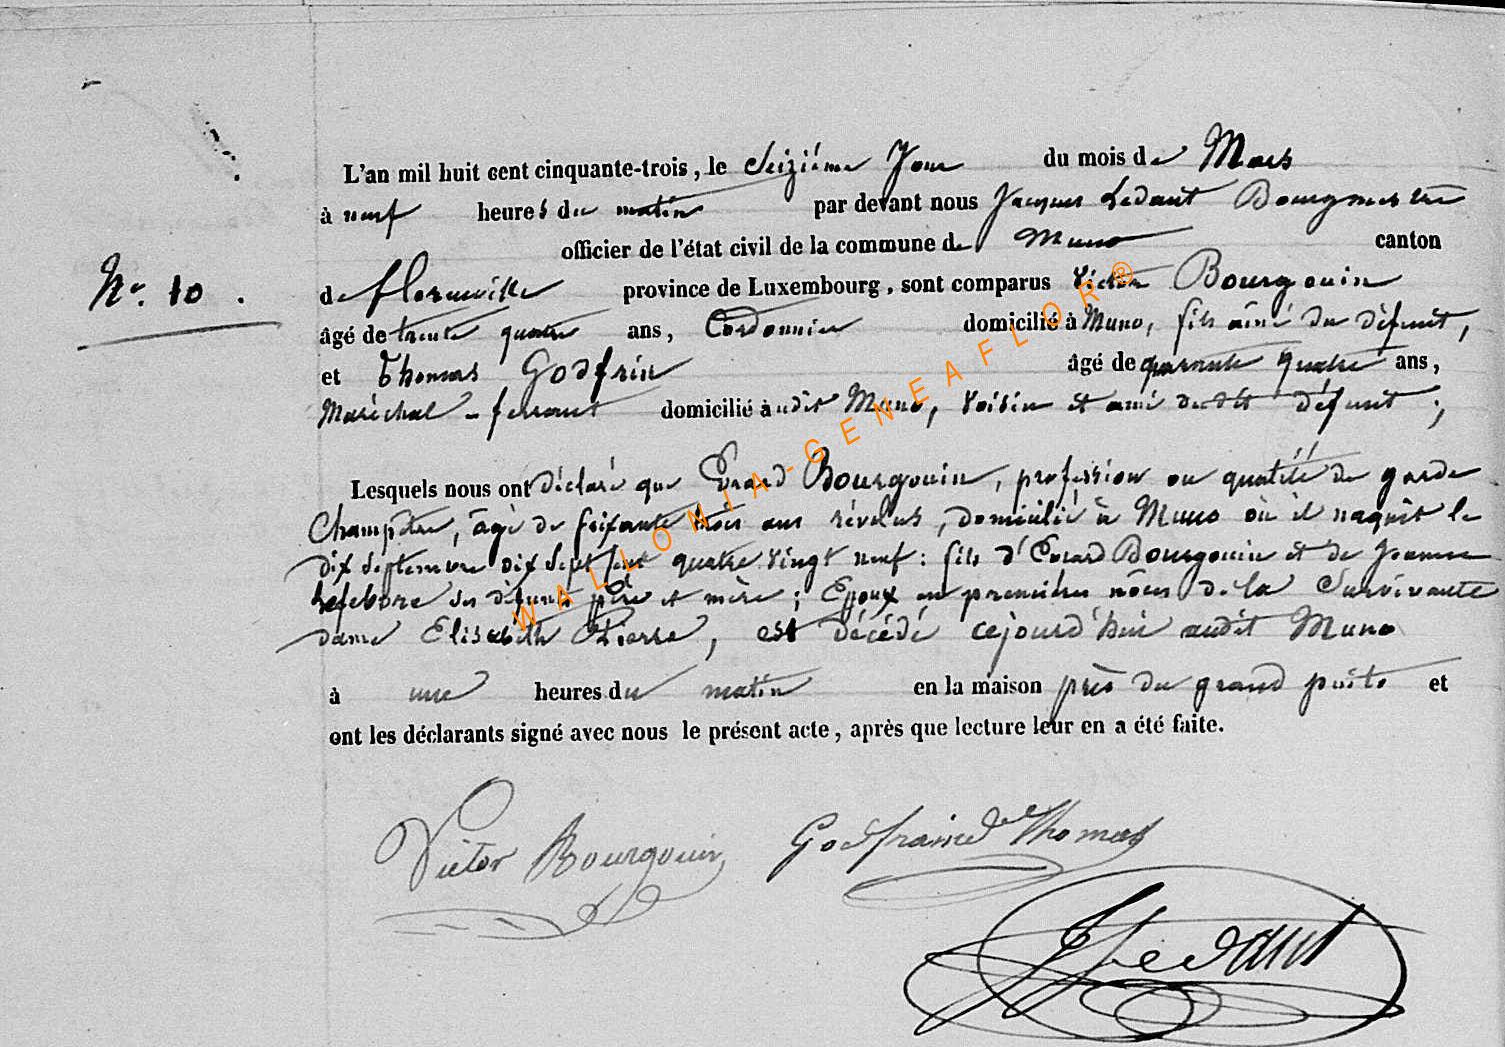 L'an mil huit cent cinquante-trois, le Seizième Jour du mois de Mars
à neuf heures du matin par devant nous Jacques Ledant Bourgmestre
officier de l'état civil de la commune de Muno canton
N°. 10.
de florenville province de Luxembourg, sont comparus Victor Bourgouin
âgé de trente quatre ans, Cordonnier domicilié à Muno, fils aîné du défunt,
et Thomas Godfrin âgé de quarante quatre ans,
Maréchal-ferrant domicilié audit Muno, voisin et ami dudit défunt;
Lesquels nous ont déclaré que Evrard Bourgouin, profession ou qualité de garde
Champêtre, âgé de soixante trois ans révolus, domicilié à Muno où il naquit le
dix septembre dix sept cent quatre vingt neuf: fils d'Evrard Bourgouin et de Jeanne
Lefebvre ses défunts père et mère; Epoux en premières nôces de la Survivante
dame Elisabeth Pierre, est décédé cejourd'hui audit Muno
à une heures du matin en la maison près du grand puits et
ont les déclarants signé avec nous le présent acte, après que lecture leur en a été faite.
Victor Bourgouin Thomas
JLedant
WALLONIA-GENEAFLOR®